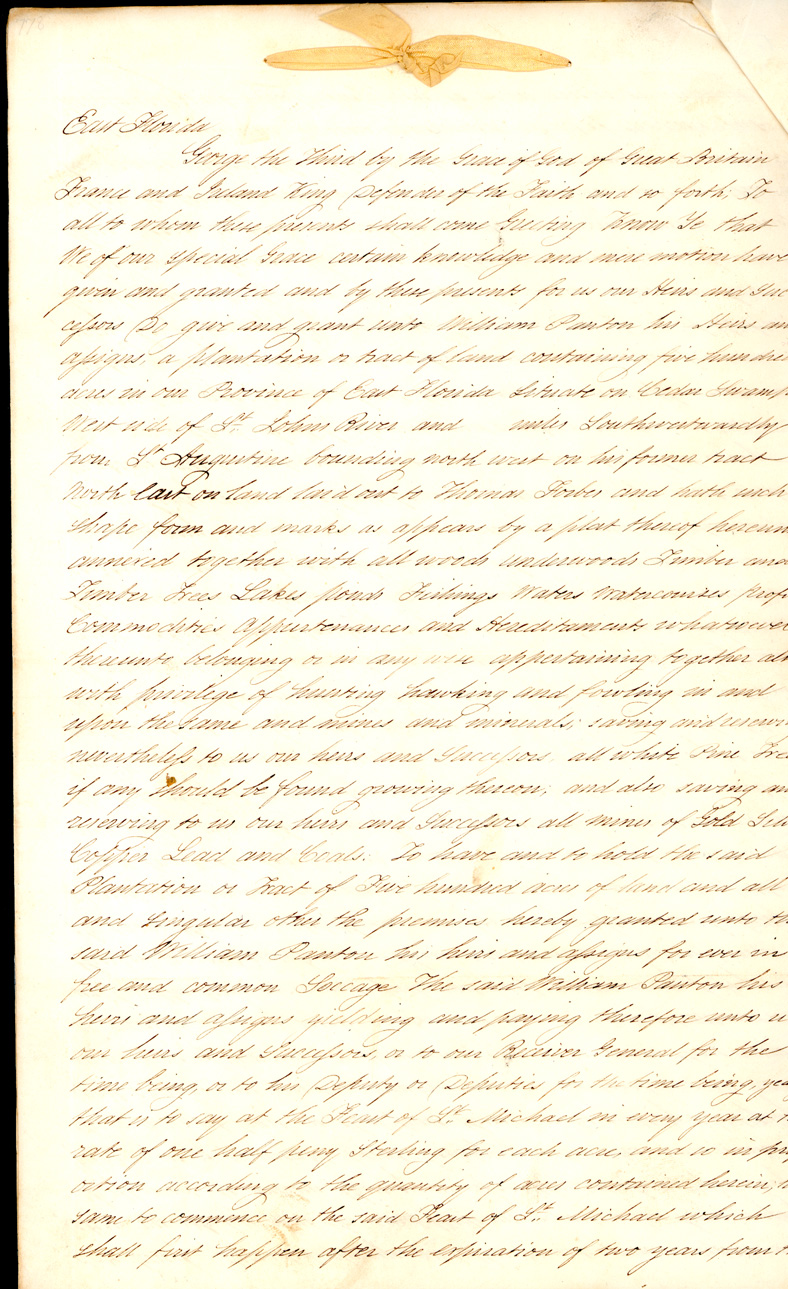 778
East Florida
George the Third by the Grace of God of Great Britain
France and Ireland King Defender of the Faith and so forth; To
all to whom these presents shall come Greeting Know Ye that
We of our special Grace certain knowledge and mere motion have
given and granted and by these presents for us our Heirs and Suc
cessors Do give and grant unto William Panton his Heirs an
assigns, a plantation or tract of land containing five hundre
acres in our Province of East Florida Situate on Cedar Swamp
West side of St. Johns River and miles Southwestwardly
from St Augustine bounding north west on his former tract
North East on land laid out to Thomas Forbes and hath such
shape form and marks as appears by a plat thereof hereun
annexed together with all woods underwoods Timber and
Timber Trees Lakes ponds Fishings Waters Watercourses prof
Commodities Appurtenances and Hereditaments whatsoever
thereunto belonging or in any wise appertaining together als
with privilege of hunting hawking and fowling in and
upon the same and mines and minerals; saving and reserv
nevertheless to us our heirs and Successors all white Pine Tre
if any should be found growing thereon; and also saving an
reserving to us our heirs and Successors all mines of Gold Sil
Copper Lead and Coals: To have and to hold the said
Plantation or Tract of Five hundred acres of land and all
and singular other the premises hereby granted unto the
said William Panton his heirs and assigns for ever in
free and common Soccage The said William Panton his
heirs and assigns yielding and paying therefore unto u
our heirs and Successors, or to our Receiver General for the
time being, or to his Deputy or Deputies for the time being, yea
that is to say at the Feast of St. Michael in every year at t
rate of one half peny Sterling for each acre, and so in prop
ortion according to the quantity of acres contained herein;
same to commence on the said Feast of St. Michael which
shall first happen after the expiration of two years from t